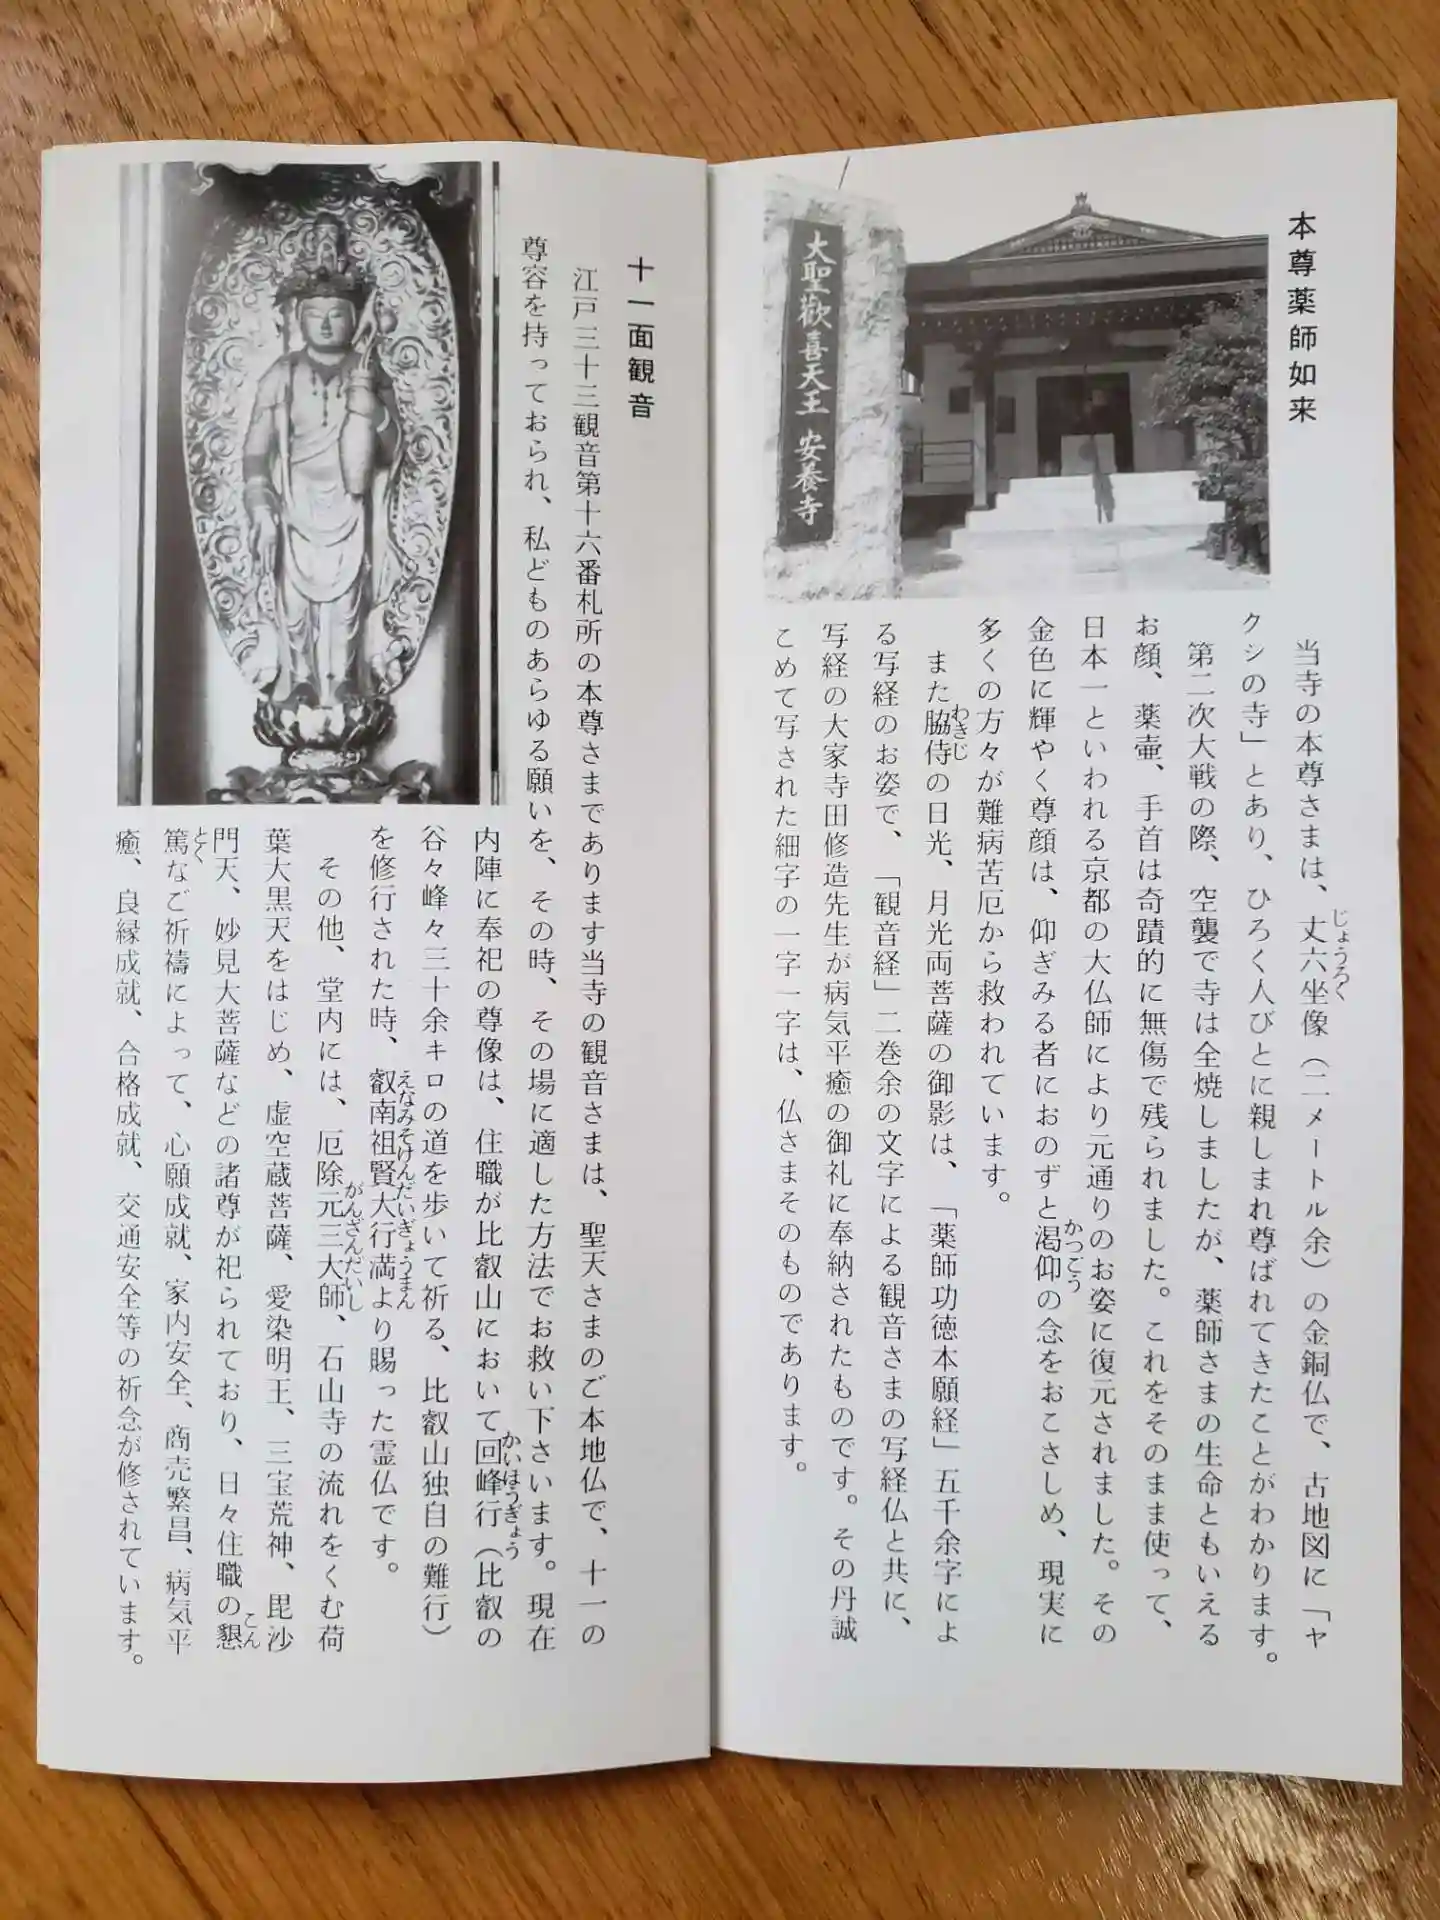 本尊薬師如来
大聖歓喜天王 安養寺
当寺の本尊さまは、丈六坐像（二メートル余）の金銅仏で、古地図に「ヤ
じょうろく
クシの寺」とあり、ひろく人びとに親しまれ尊ばれてきたことがわかります。
第二次大戦の際、空襲で寺は全焼しましたが、薬師さまの生命ともいえる
お顔、薬壷、手首は奇蹟的に無傷で残られました。これをそのまま使って、
日本一といわれる京都の大仏師により元通りのお姿に復元されました。その
金色に輝やく尊顔は、仰ぎみる者におのずと渇仰の念をおこさしめ、現実に
かつごう
多くの方々が難病苦厄から救われています。
また脇侍の日光、月光両菩薩の御影は、「薬師功徳本願経」五千余字によ
わきじ
る写経のお姿で、「観音経」二巻余の文字による観音さまの写経仏と共に、
写経の大家寺田修造先生が病気平癒の御礼に奉納されたものです。その丹誠
こめて写された細字の一字一字は、仏さまそのものであります。
十一面観音
江戸三十三観音第十六番札所の本尊さまであります当寺の観音さまは、聖天さまのご本地仏で、十一の
尊容を持っておられ、私どものあらゆる願いを、その時、その場に適した方法でお救い下さいます。現在
内陣に奉祀の尊像は、住職が比叡山において回峰行（比叡の
かいほうぎょう
谷々峰々三十余キロの道を歩いて祈る、比叡山独自の難行）
を修行された時、叡南祖賢大行満より賜った霊仏です。
えなみそけんだいぎょうまん
その他、堂内には、厄除元三大師、石山寺の流れをくむ荷
がんざんだいし
葉大黒天をはじめ、虚空蔵菩薩、愛染明王、三宝荒神、毘沙
門天、妙見大菩薩などの諸尊が祀られており、日々住職の懇
こん
篤なご祈禱によって、心願成就、家内安全、商売繁昌、病気平
とく
癒、良縁成就、合格成就、交通安全等の祈念が修されています。